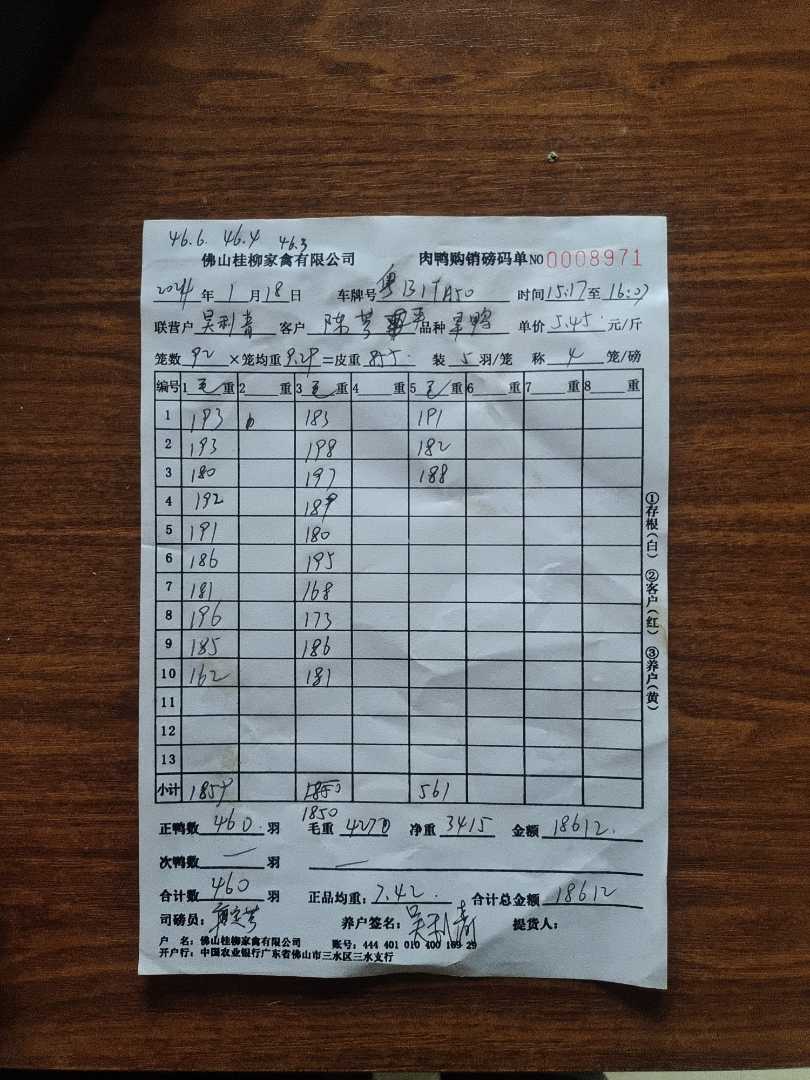 46.6. 46.4 46.3
佛山桂柳家禽有限公司 肉鸭购销磅码单 NO 0008971
2024 年 1 月 18 日 车牌号 粤B 时间 15:17 至 16:07
联营户 吴利青 客户 陈 品种 鸭 单价 5.45 元/斤
笼数 92 ×笼均重 9.29 =皮重 855. 装 5 羽/笼 称 4 笼/磅
编号 1 毛 重 2 重 3 毛 重 4 重 5 毛 重 6 重 7 重 8 重
1 193 183 191
2 193 198 182
3 180 197 188
4 192 189
5 191 180
6 186 195
7 181 168
8 196 173
9 185 186
10 162 181
11
12
13
小计 1859 1850 561
1850
正鸭数 460. 羽 毛重 4270 净重 3415 金额 18612.
次鸭数 — 羽 —
合计数 460 羽 正品均重: 7.42. 合计总金额 18612
司磅员: 养户签名: 吴利青 提货人:
户 名: 佛山桂柳家禽有限公司 账号: 444 401 010 400 169 29
开户行: 中国农业银行广东省佛山市三水区三水支行
①存根(白) ②客户(红) ③养户(黄)